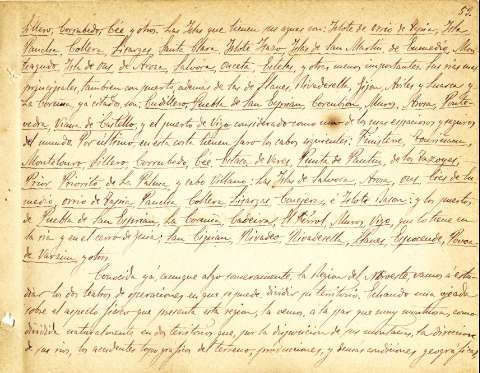 59.
Sillero, Corrubedo, Cée y otros. Las Islas que tienen sus aguas son: Islote de orrio de Tapia, Isla
Pancha, Collera, Sisargas, Santa Clara, Islote Izaro, Islas de San Martin, de Enmedio, Mon-
teagudo, Isla de Ons, de Arosa, Salvora, Onceta, Coletas, y otras menos importantes. Sus rias mas
principales, tambien con puerto, ademas de las de Llanes, Rivadesella, Gijon, Aviles y Luarca y
La Coruña, ya citados, son: Cudillero, Puebla de San Ciprian, Corcubion, Muros, Arosa, Ponte-
vedra, Viana de Castello, y el puerto de Vigo, considerado como uno de los mas espaciosos y seguros
del mundo. Por ultimo, en esta costa tienen faro los cabos siguientes: Finisterre, Touriñana,
Montelouro, Sillero, Corrubedo, Cée, Estaca de Vares, Punta de Pantin, de los Razoyes,
Prior, Prioriño, de La Palma, y cabo Villano: Las Islas de Salvora, Arosa, Ons, Cies de En-
medio, orrio de Tapia, Pancha, Collera, Sisargas, Conejera, é Islote Izaron: y los puertos,
de Puebla de San Ciprian, La Coruña, Cadeira, El Ferrol, Muros, Vigo, que lo tiene en
la ria y en el cerro de guia; San Ciprian, Rivadeo, Rivadesella, Llanes, Esposende, Povoa
de Varzim y otros.
Conocida ya, aunque algo someramente, la Region del Noroeste, vamos a estu-
diar los dos teatros de operaciones en que se puede dividir su territorio. Echando una ojeada
sobre el aspecto fisico que presenta esta region, la vemos, a la par que muy montuosa, como
dividida naturalmente en dos territorios que, por la disposicion de sus montañas, la direccion
de sus rios, los accidentes topograficos del terreno, producciones, y demas condiciones geograficas